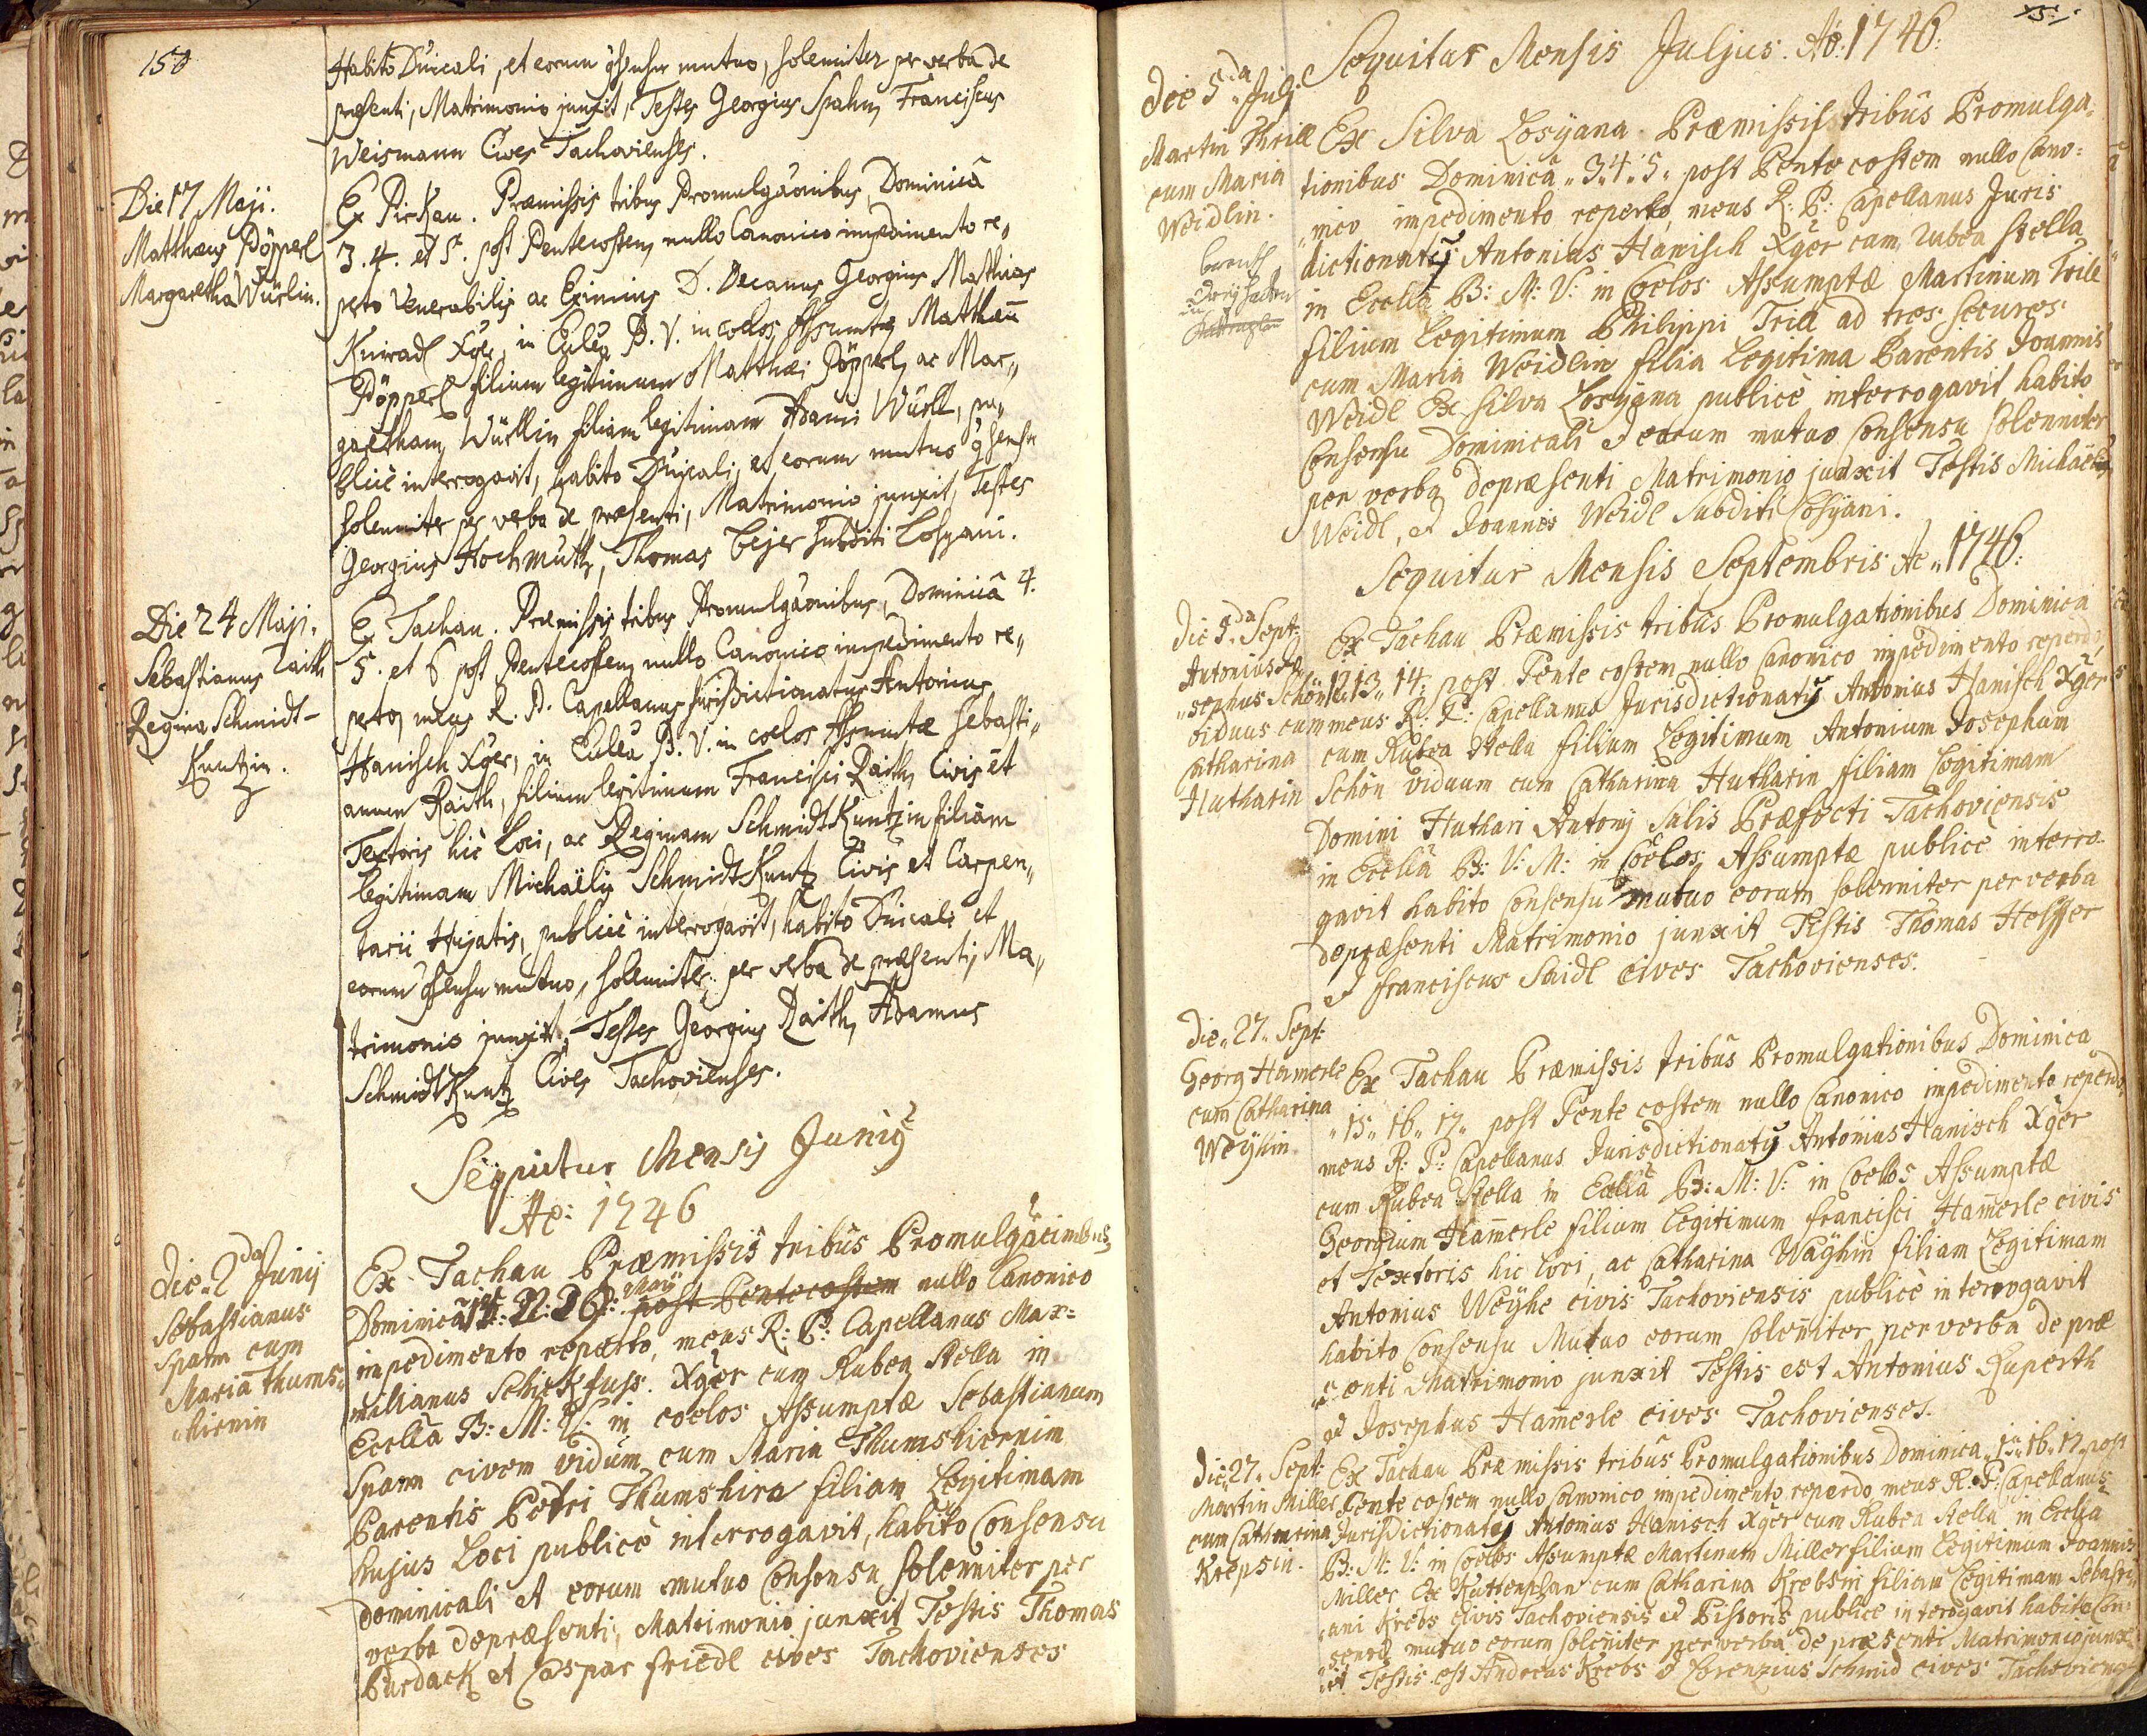 150
Habito Dnicali, et eorum gsensu mutuo, solemniter per verba de
presenti, Matrimonio junxit, Testes Georgius Spahn, Franciscus
Weismann Cives Tachovienses.
Die 17 Maji.
Matthaeus Pöpperl
Margaretha Würlin.
Ex Pirkau. Praemissis tribus Promulgaonibus, Dominicâ
3. 4. et 5. post Pentecosten, nullo Canonico impedimento re„
perto Venerabilis ac Eximius D. Decanus Georgius Mathias
Kniradl Xger, in Ecclea B. V. in coelos Assumtae Matthaeu
Pöpperl filium legitimum Matthaei Pöpperl, ac Mar„
garetham Würllin filiam legitimam Adami Würll, pu„
blicè interrogavit, habito Dnicali, et eorum mutuo gsensu
solemniter per verba de praesenti, Matrimonio junxit, Testes
Georgius Hochmuth, Thomas Bejer subditi Losyani.
Die 24 Maji.
Sebastianus Raith
Regina Schmidt-
Kuntzin.
Ex Tachau. Praemissis tribus Promulgaonibus, Dominicâ 4.
5. et 6 post Pentecosten, nullo Canonico impedimento re„
perto, meus R. P. Capellanus Jurisdictionatus Antonius
Hanisch Xger, in Ecclea B. V. in coelos Assumtae Sebasti„
anum Raith, filium legitimum Francisci Raith, Civis et
Textoris hic Loci, ac Reginam SchmidtKuntzin filiam
legitimam Michaëlis SchmidtKuntz Civis et Carpen„
tarii Hujatis, publicè interrogavit, habito Dnicali et
eorum gsensu mutuo, solemniter per verba de praesenti, Ma„
trimonio junxit. Testes Georgius Raith, Adamus
SchmidtKuntz Cives Tachovienses.
Sequitur Mensis Junij
Ae: 1746
die„ 2da Junij
Sebastianus
Spann cum
Maria Thums„
„hirnin
Ex Tachau Praemissis tribus Promulgacionibus
Dominicâ 15: 22: 26: Maij post Pentecostem nullo Canonico
impedimento reperto, meus R: P: Capellanus Max=
milianus Schickfuss. Xger cum Rubea stella in
Ecellâ B: M: V: in coelos Assumptae Sebastianum
Spann civem vidum, cum Maria Thumshiernin
Parentis Petri Thumshirn filiam Legitimam
hujus Loci publicè interrogavit, habito Consensu
dominicali et eorum mutuo Consensu solenniter per
verba depraesenti, Matrimonio junxit Testis Thomas
Burdack et Caspar friedl cives Tachovienses
151
Sequitur Mensis Juljus. Ao: 1746:
die 5da Julj
Martin Thrill
cum Maria
Weidlin.
Ex Silva Losyana. Praemissis tribus Promulga„
tionibus Dominicâ „3„4„5„ post Pentecostem nullo Cano=
„nico impedimento reperto, meus R: P: Capellanus Juris
dictionatus Antonius Hanisch Xger cum rubea stella
in Ecellâ B: M: V: in Coelos Assumptae Martinum Trill
filium Legitimum Philippi Trill ad tres secures
cum Maria Weidlin filia Legitima Parentis Joannis
Weidl Ex silva Losyana publicè interrogavit habito
Consensu Dominicali et eorum mutuo Consensu solenniter
per verba depraesenti Matrimonio junxit Testis Michaël
Weidl, et Joannes Weidl Subditi Losyani.
Sequitur Mensis Septembris Ae„ 1746:
die da Sept:
Antonius Jo
„sephus Schön
viduus cum
Catharina
Hutharin
Ex Tachau Praemissis tribus Promulgationibus Dominica
12„ 13„ 14: post Pentecostem nullo Canonico impedimento reperto,
meus R: P: Capellanus Jurisdictionatus Antonius Hanisch Xger
cum Rubea stella filium Legitimum Antonium Josephum
Schön viduum cum Catharina Hutharin filiam Legitimam
Domini Huthari Antonij Salis Praefecti Tachoviensis
in Ecellâ B: V: M: in Coelos Assumptae publicè interro„
gavit habito Consensu mutuo eorum solenniter per verba
depraesenti Matrimonio junxit Testis Thomas Helffer
et franciscus Saidl cives Tachovienses.
die„ 27„ Sept:
Georg Hamerle
cum Catharina
Weyhin
Ex Tachau Praemissis tribus Promulgationibus Dominica
„15„ 16„ 17„ post Pentecostem nullo Canonico impedimento reperto,
meus R: P: Capellanus Jurisdictionatus Antonius Hanisch Xger
cum Rubea stella in Eccliâ B: M: V: in Coelos Assumptae
Georgium Hamerle filium Legitimum francisci Hamerle civis
et Textoris hic loci, ac Catharina Wayhin filiam Legitimam
Antonius Weyhe civis Tachoviensis publicè interrogavit
habito Consensu Mutuo eorum solenniter per verba de prae
senti Matrimonio junxit Testis est Antonius Ruperth
et Josephus Hamerle cives Tachovienses.
die„ 27„ Sept:
Martin Miller
cum Catharina
Krepsin.
Ex Tachau Praemissis tribus Promulgationibus Dominica „15„ 16„ 17„ post
Pentecostem nullo Canonico impedimento reperdo, meus R: P: Capellanus
Jurisdictionatus Antonius Hanisch Xger cum Rubea stella in Ecelia
B: M: V: in Coelos Assumptae Martinum Miller filium Legitimum Joannis
Miller Ex Kuttenplan cum Catharina Krebsin filiam Legitimam Sebasti„
ani Krebs civis Tachoviensis et Pistoris publicè interogavit habito Con„
sensu mutuo eorum solenniter per verba de praesenti Matrimonio junx„
it Testis est Andreas Krebs et Lorenzius Schmid cives Tachoviens